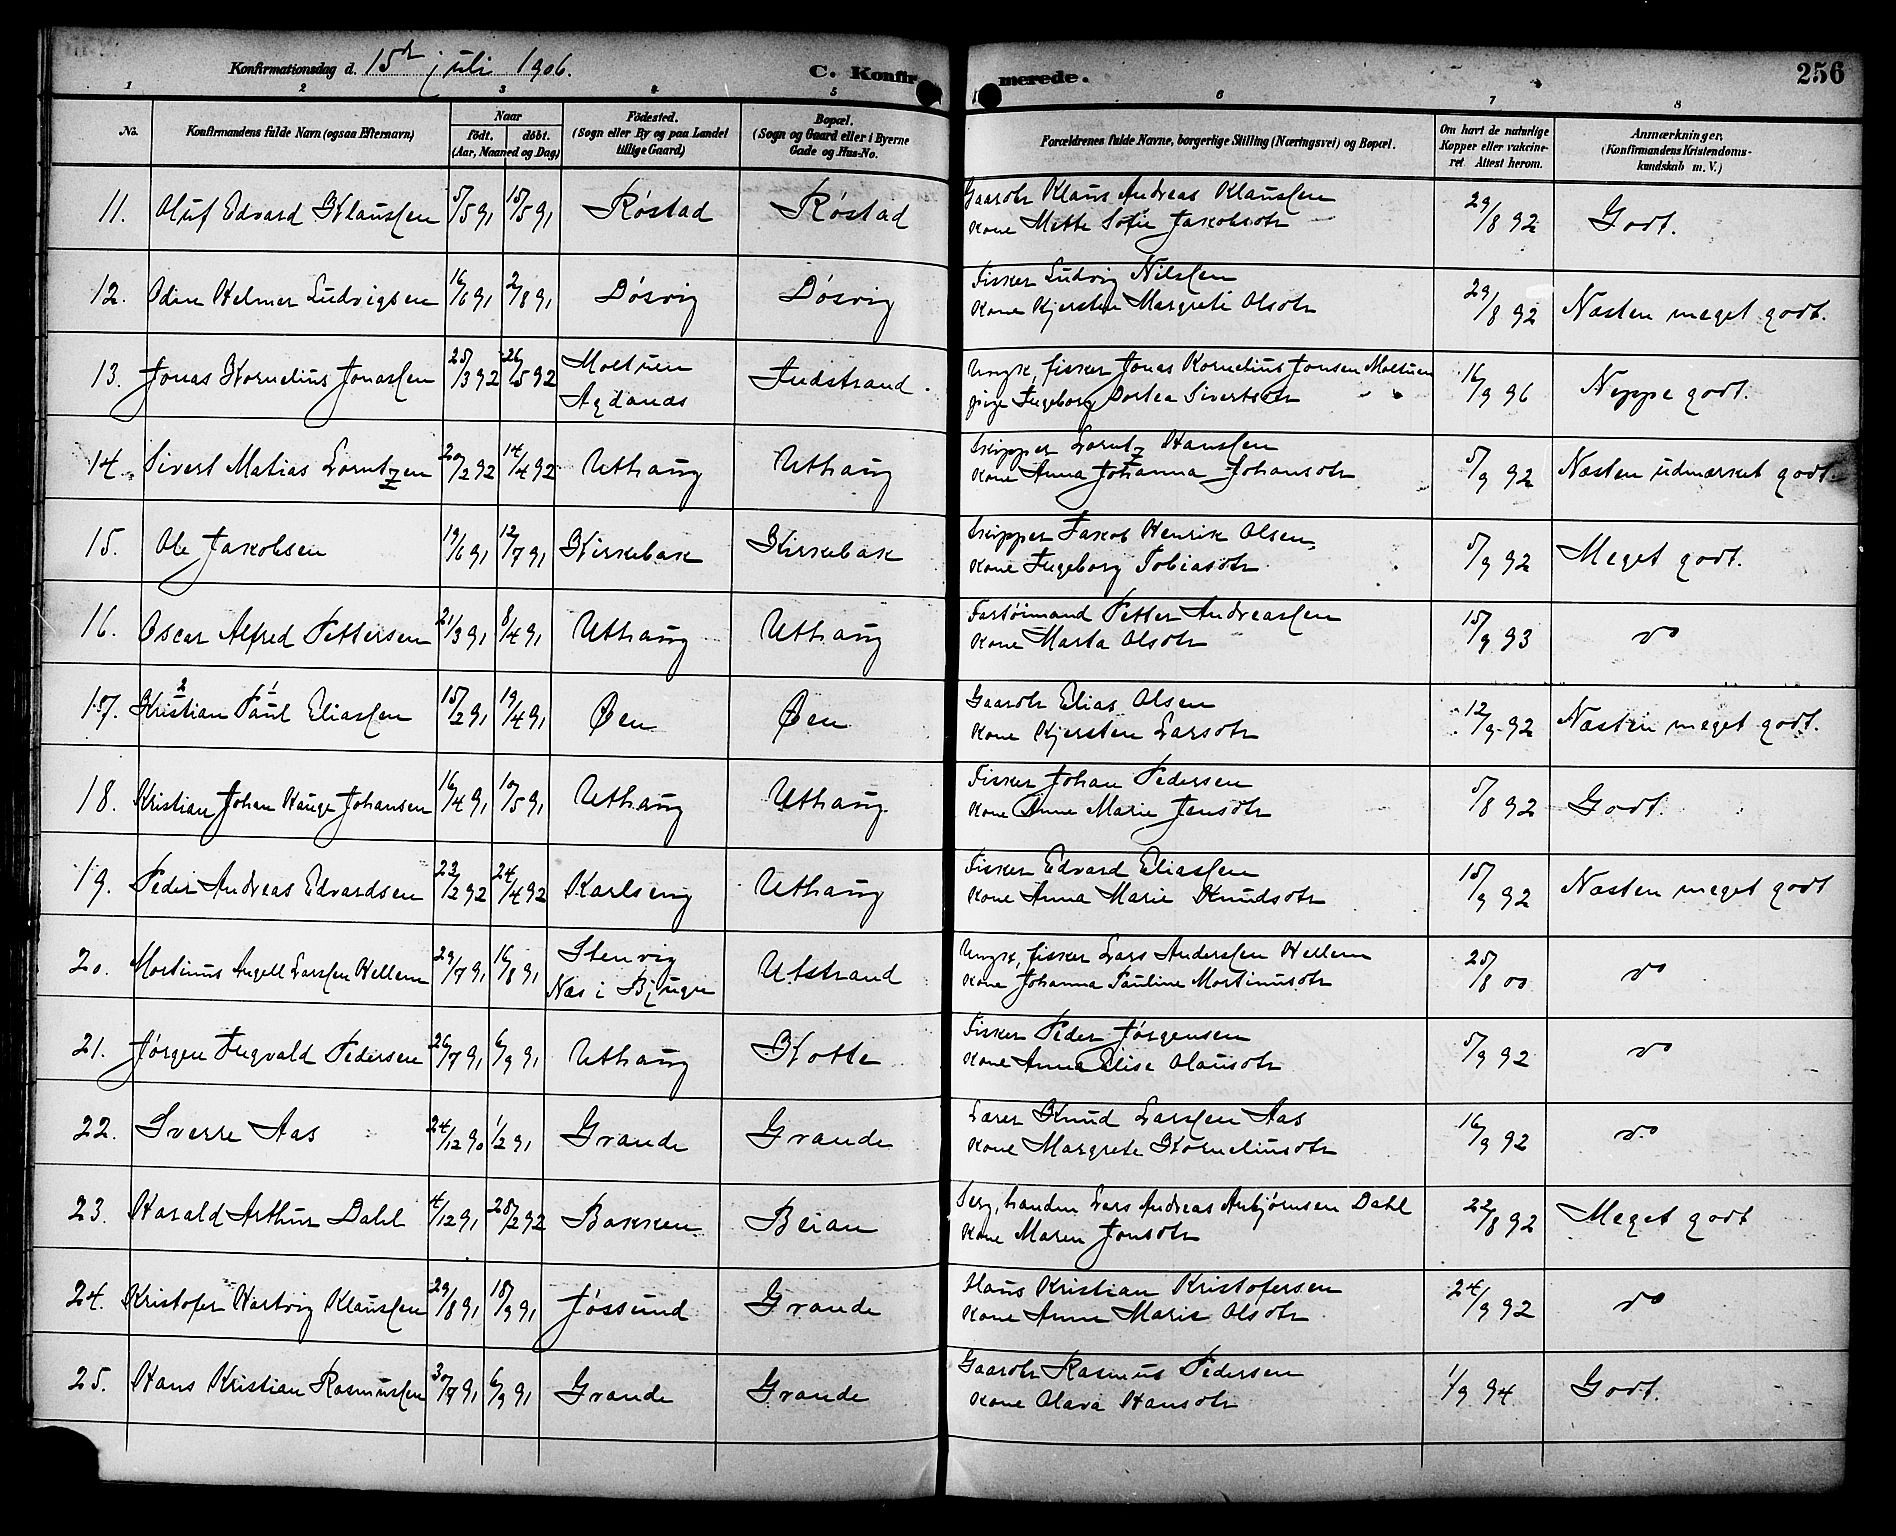 Konfirmationsdag d. 15de juli 1906.
C. Konfirmerede.
256
1 2 3 4 5 6 7 8
No.
Konfirmandens fulde Navn (ogsaa Efternavn)
Naar
födt. döbt.
(Aar, Maaned og Dag)
Födested.
(Sogn eller By og paa Landet
tillige Gaard)
Bopæl.
(Sogn og Gaard eller i Byerne
Gade og Hus-No.
Forældrenes fulde Navne, borgerlige Stilling (Næringsvei) og Bopæl.
Om havt de naturlige
Kopper eller vakcine-
ret. Attest herom.
Anmærkninger.
(Konfirmandens Kristendoms-
kundskab m. V.)
11. Oluf Edvard Klaussen 5/5 91 18/5 91 Røstad Røstad Gaardbr Klaus Andreas Klaussen
Kone Mette Sofie Jakobsdtr 29/8 92 Godt.
12. Odin Helmer Ludvigsen 16/6 91 2/8 91 Døsvig Døsvig Fisker Ludvig Nilssen
Kone Kjersten Margrete Olsdtr 29/8 92 Næsten meget godt.
13. Jonas Kornelius Jonassen 25/3 92 26/5 92 Moltuen
Agdanæs Indstrand. Ungk. fisker Jonas Kornelius Jonsen Moltuen
pige Ingeborg Dortea Sivertsdtr 16/9 96 Neppe godt.
14. Sivert Matias Lorntzen 20/2 92 14/4 92 Uthaug Uthaug Skipper Lorntz Hanssen
Kone Anna Johanna Johansdtr 5/9 92 Næsten udmærket godt.
15. Ole Jakobsen 19/6 91 12/7 91 Kirkebak Kirkebak Skipper Jakob Henrik Olsen,
Kone Ingeborg Tobiasdtr. 5/9 92 Meget godt.
16. Oscar Alfred Pettersen 21/3 91 8/4 91 Uthaug Uthaug Fartøimand Petter Andreassen
Kone Marta Olsdtr 15/9 93 do
17. Kristian 2 Paul 1 Eliassen 15/2 91 19/4 91 Øen Øen Gaardbr Elias Olsen
Kone Kjersten Larsdtr 12/9 92 Næsten meget godt.
18. Kristian Johan Hauge Johansen 16/4 91 10/5 91 Uthaug Uthaug Fisker Johan Pedersen
Kone Anne Marie Jensdtr 5/8 92 Godt.
19. Peder Andreas Edvardsen 23/2 92 24/4 92 Karlseng Uthaug Fisker Edvard Eliassen
Kone Anna Marie Knudsdtr 15/9 92 Næsten meget godt
20. Mortinus Angell Larssen Hellem 29/7 91 16/8 91 Stenvig
Næs i Bjugn Utstrand Ungk, fisker Lars Anderssen Hellem
Kone Johanna Pauline Mortinusdtr 25/8 00 do
21. Jørgen Ingvald Pedersen 26/7 91 6/9 91 Uthaug Kotte Fisker Peder Jørgensen
Kone Anna Elise Olausdtr 5/9 92 do
22. Sverre Aas 24/12 90 1/2 91 Grande Grande Lærer Knud Larssen Aas
Kone Margrete Korneliusdtr 16/9 92 do
23. Harald Arthur Dahl 4/12 91 28/2 92 Bakken Beian Serg, handm Lars Andreas Anbjørnsen Dahl
Kone Maren Jonsdtr 22/8 92 Meget godt
24. Kristofer Hartvig Klaussen 29/8 91 18/9 91 Jøssund Grande Hans Kristian Kristofersen
Kone Anne Marie Olsdtr 24/9 92 do
25. Hans Kristian Rasmussen 30/7 91 6/9 91 Grande Grande Gaardbr Rasmus Pedersen
Kone Olava Hansdtr 1/9 94 Godt.